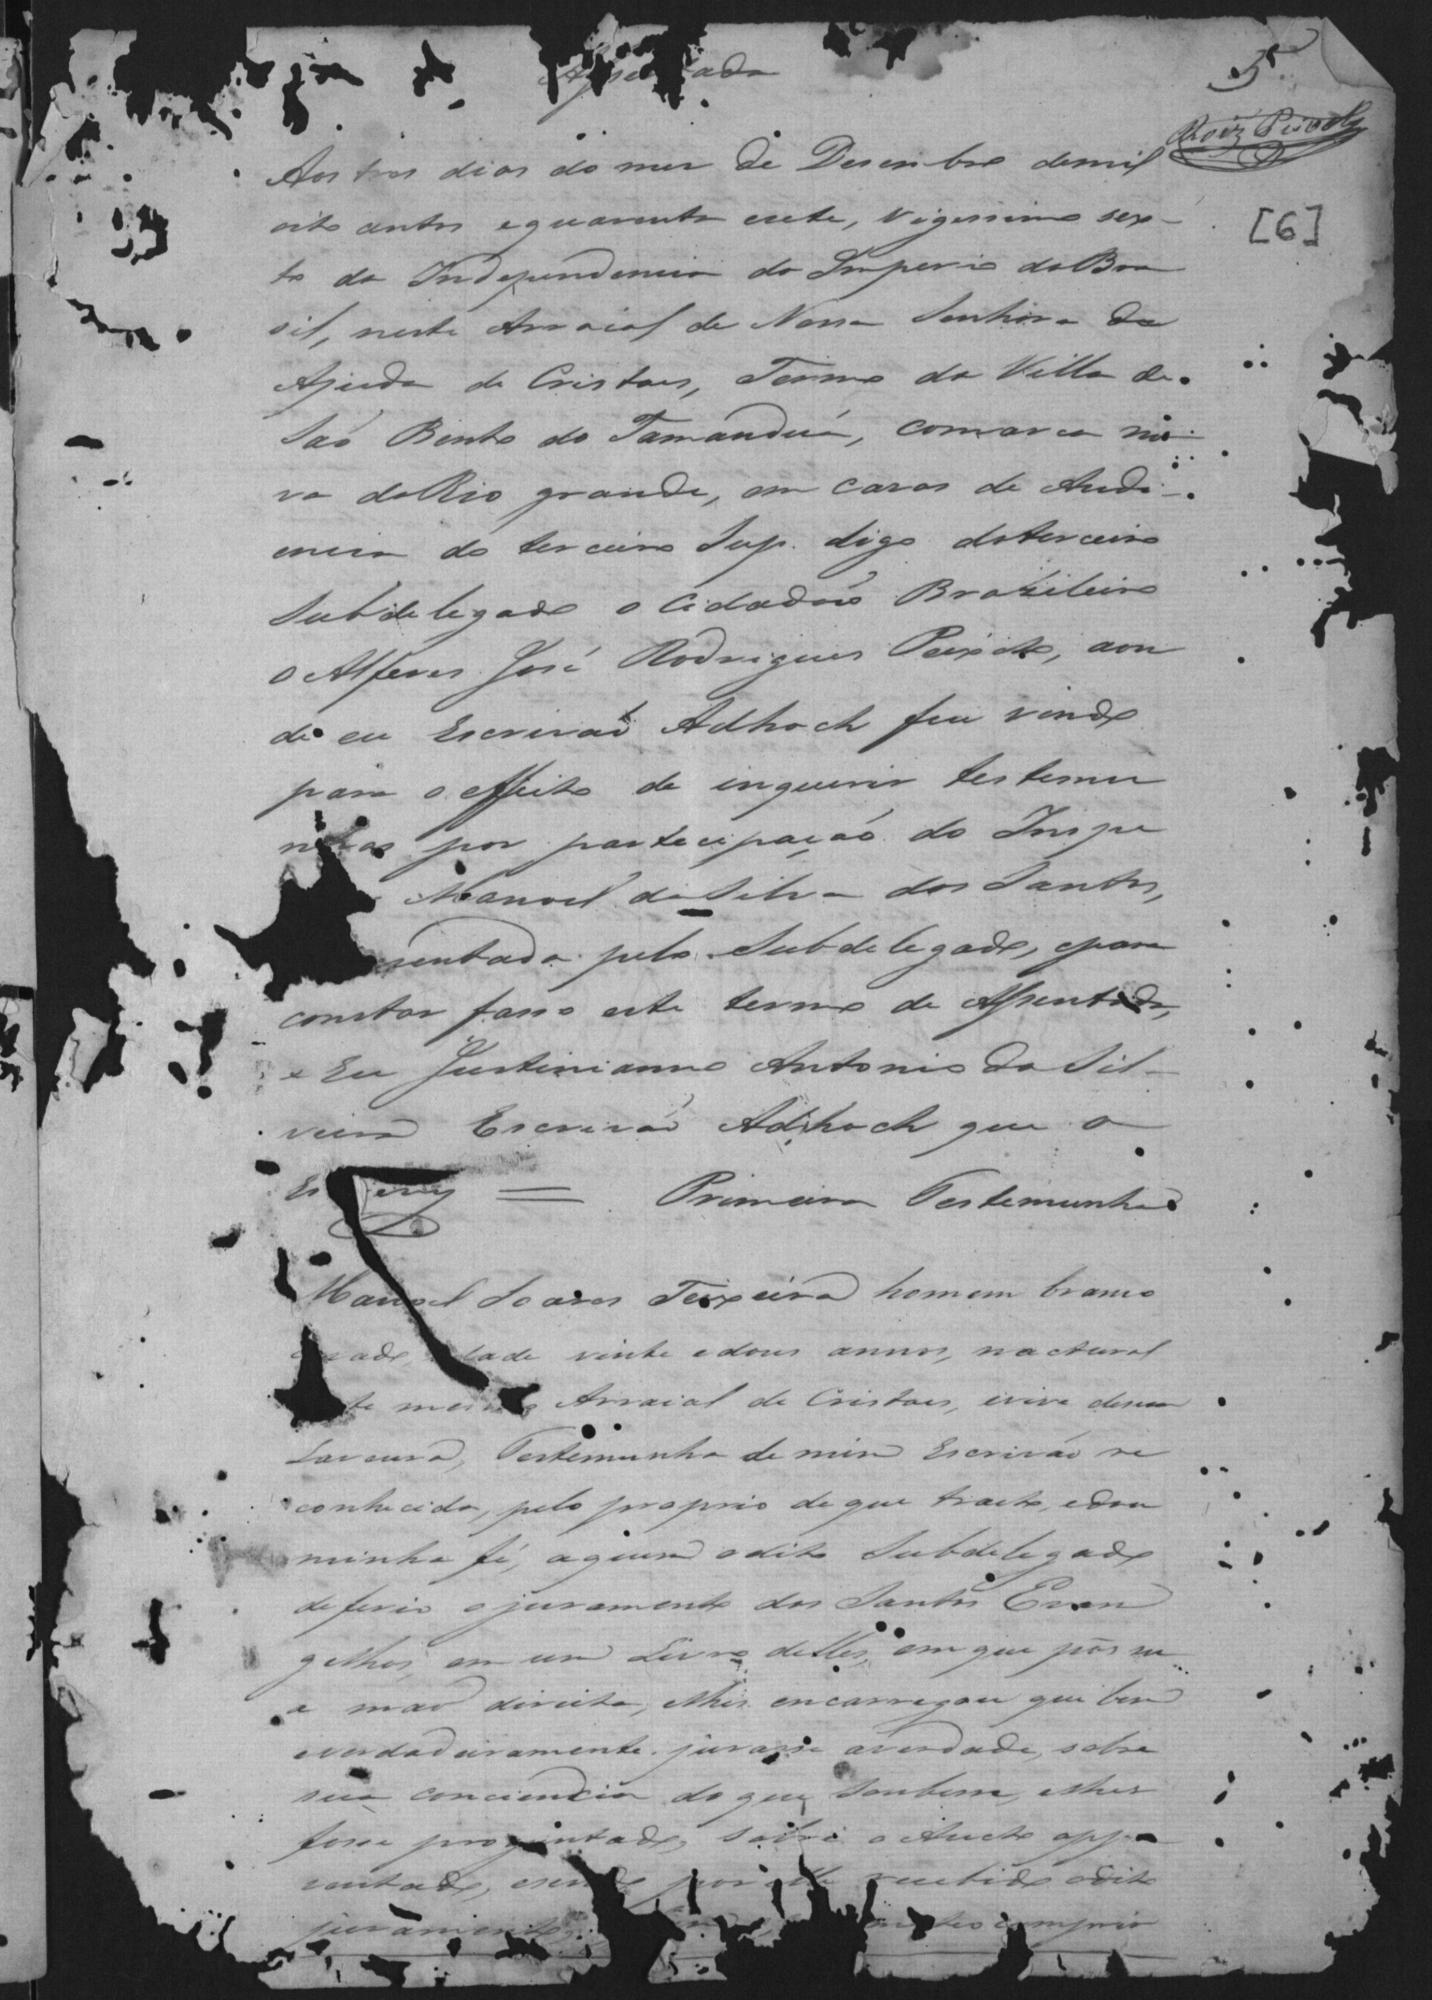 Assentada
5
Roiz Peixoto
[6]
Aos tres dias do mes de Desembro demil
oito centos equarenta esete, Vigessimo sex-
to da Independencia do Imperio do Bra
sil, neste Arraial de Nossa Senhora da
Ajuda de Cristaes, Termo da Villa de
Saõ Bento do Tamanduá, comarca no
va do Rio grande, em casas de Audi-
encia do terceiro Sup. digo doterceiro
Subdelegado o Cidadaõ Brazileiro
o Alferes José Rodrigues Peixoto, aon
de eu Escrivaõ Adhoch fui vindo
para o effeito de inquerir testemu
nhas por partecipaçaõ do Inspe
Manoel da Silva dos Santos,
sentada pelo Subdelegado, epara
constar fasso este termo de Assentada,
e Eu Justinianno Antonio da Sil-
veira Escrivaõ Adhoch que o
Escrevy = Primeira Testemunha
Manoel Soares Teixeira homem branco
casado, idade vinte edous annos, nactural
deste mesmo Arraial de Cristaes, evive desua
Lavoura, Testemunha de mim Escrivaõ re
conhecida, pelo proprio de que tracto, edou
minha fé, aquem odito Subdelegado
deferio ojuramento dos Santos Evan
gelhos, em um Livro delles, em que pôs su
a maõ direita, elhes encarregou que bem
everdadeiramente jurasse averdade, sobre
sua conciencia do que Soubesse, elhes
fosse proguntado, sobre o Aucto appre
sentado, esendo por elle recebido odito
juramento, comprir